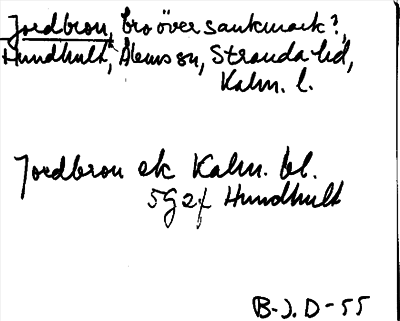 Jordbron, bro över sankmark?,
Hundhult, Ålems sn, Stranda hd,
Kalm. l.
Jordbron ek Kalm. bl.
5G2f Hundhult
B-J. D-55